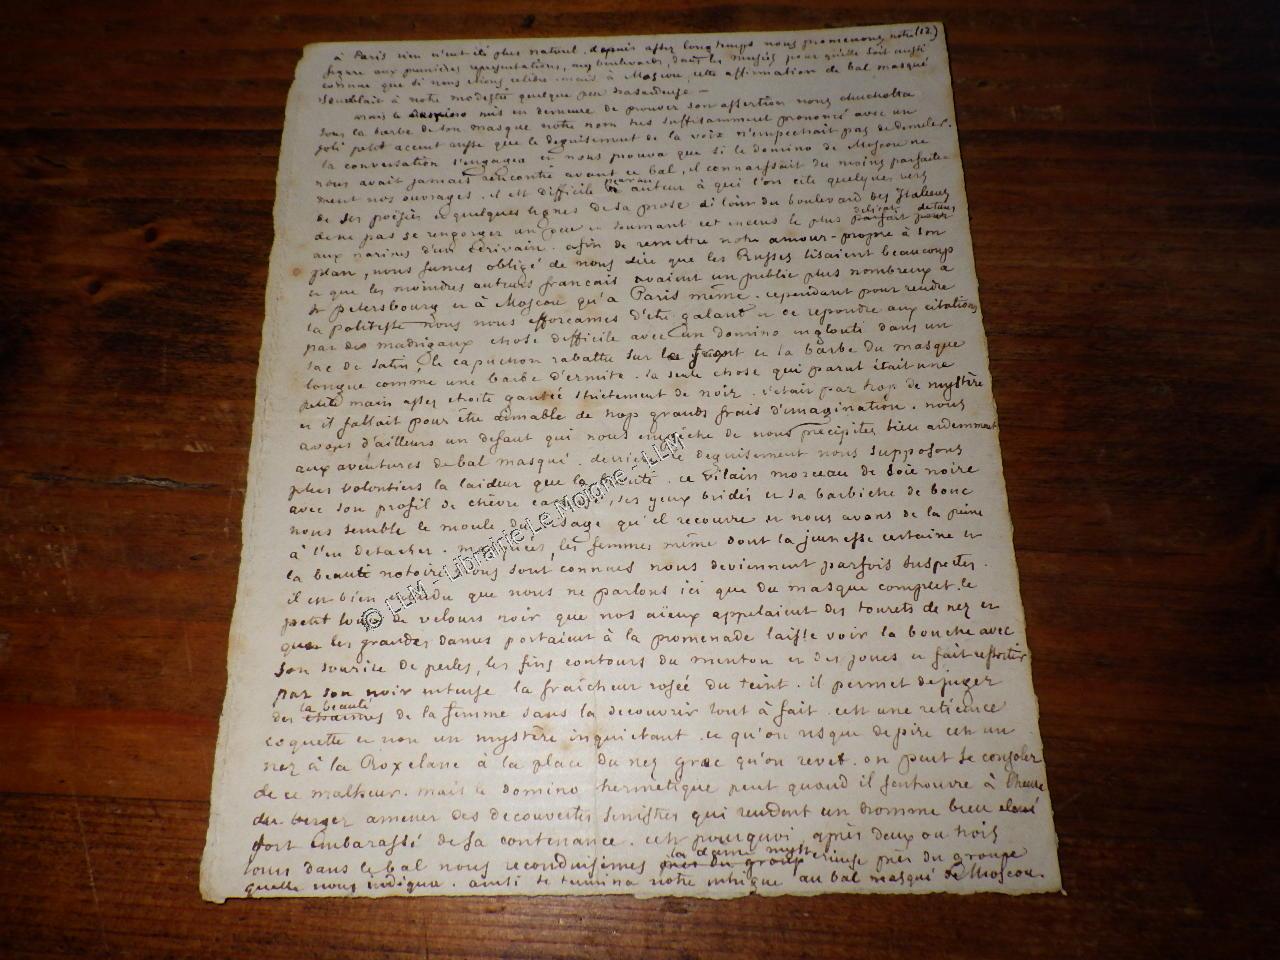 à Paris rien n'eut été plus naturel. depuis assez longtemps nous promenons notre (12.)
figure aux premières représentations, aux boulevards, dans les musées pour qu'elle soit aussi
connue que si nous étions célèbre. mais à Moscou, cette affirmation de bal masqué
semblait à notre modestie quelque peu hasardeuse —
mais le domino mis en demeure de prouver son assertion nous chuchotta
sous la barbe de son masque notre nom très suffisamment prononcé avec un
joli petit accent russe que le déguisement de la voix n'empêchait pas de démêler.
la conversation s'engagea et nous prouva que si le domino de Moscou ne
nous avait jamais rencontré avant ce bal, il connaissait du moins parfaite-
ment nos ouvrages. il est difficile à un auteur à qui l'on cite quelques vers
de ses poésies et quelques lignes de sa prose si loin du boulevard des Italiens
de ne pas se rengorger un peu en humant cet encens le plus délicat de tous
parfait pour
aux narines d'un écrivain. afin de remettre notre amour-propre à son
plan, nous fumes obligé de nous dire que les Russes lisaient beaucoup
et que les moindres auteurs français avaient un public plus nombreux à
St Petersbourg et à Moscou qu'à Paris même. cependant pour rendre
la politesse nous nous efforçames d'etre galant et de repondre aux citations
par des madrigaux chose difficile avec un domino englouti dans un
sac de satin, le capuchon rabattu sur le front et la barbe du masque
longue comme une barbe d'ermite. la seule chose qui parut était une
petite main assez étroite gantée strictement de noir. c'était par trop de mystère
et il fallait pour être aimable de trop grands frais d'imagination. nous
avons d'ailleurs un defaut qui nous empêche de nous précipiter bien ardemment
aux aventures de bal masqué. derrière le deguisement nous supposons
plus volontiers la laideur que la beauté. ce vilain morceau de soie noire
avec son profil de chèvre, ses yeux bridés et sa barbiche de bouc
nous semble le moule du visage qu'il recouvre et nous avons de la peine
à l'en detacher. masquées, les femmes même dont la jeunesse certaine et
la beauté notoire nous sont connues nous deviennent parfois suspectes.
il est bien entendu que nous ne parlons ici que du masque complet. le
petit loup de velours noir que nos aïeux appelaient des tourets de nez et
que les grandes dames portaient à la promenade laisse voir la bouche avec
son sourire de perles, les fins contours du menton et des joues et fait ressortir
par son noir intense la fraîcheur rosée du teint. il permet de juger
la beauté
des charmes de la femme sans la decouvrir tout à fait. c'est une reticence
coquette et non un mystère inquietant. ce qu'on risque de pire c'est un
nez à la Roxelane à la place du nez grec qu'on revet. on peut se consoler
de ce malheur. mais le domino hermetique peut quand il s'entrouvre à l'heure
du berger amener des decouvertes sinistres qui rendent un homme bien elevé
fort embarassé de sa contenance. c'est pourquoi, après deux ou trois
tours dans le bal nous reconduisimes la dame mysterieuse près du groupe
près du groupe
quelle nous indiqua. ainsi se termina notre intrigue au bal masqué de Moscou.
© LLM - Librairie Le Moigne - LLM